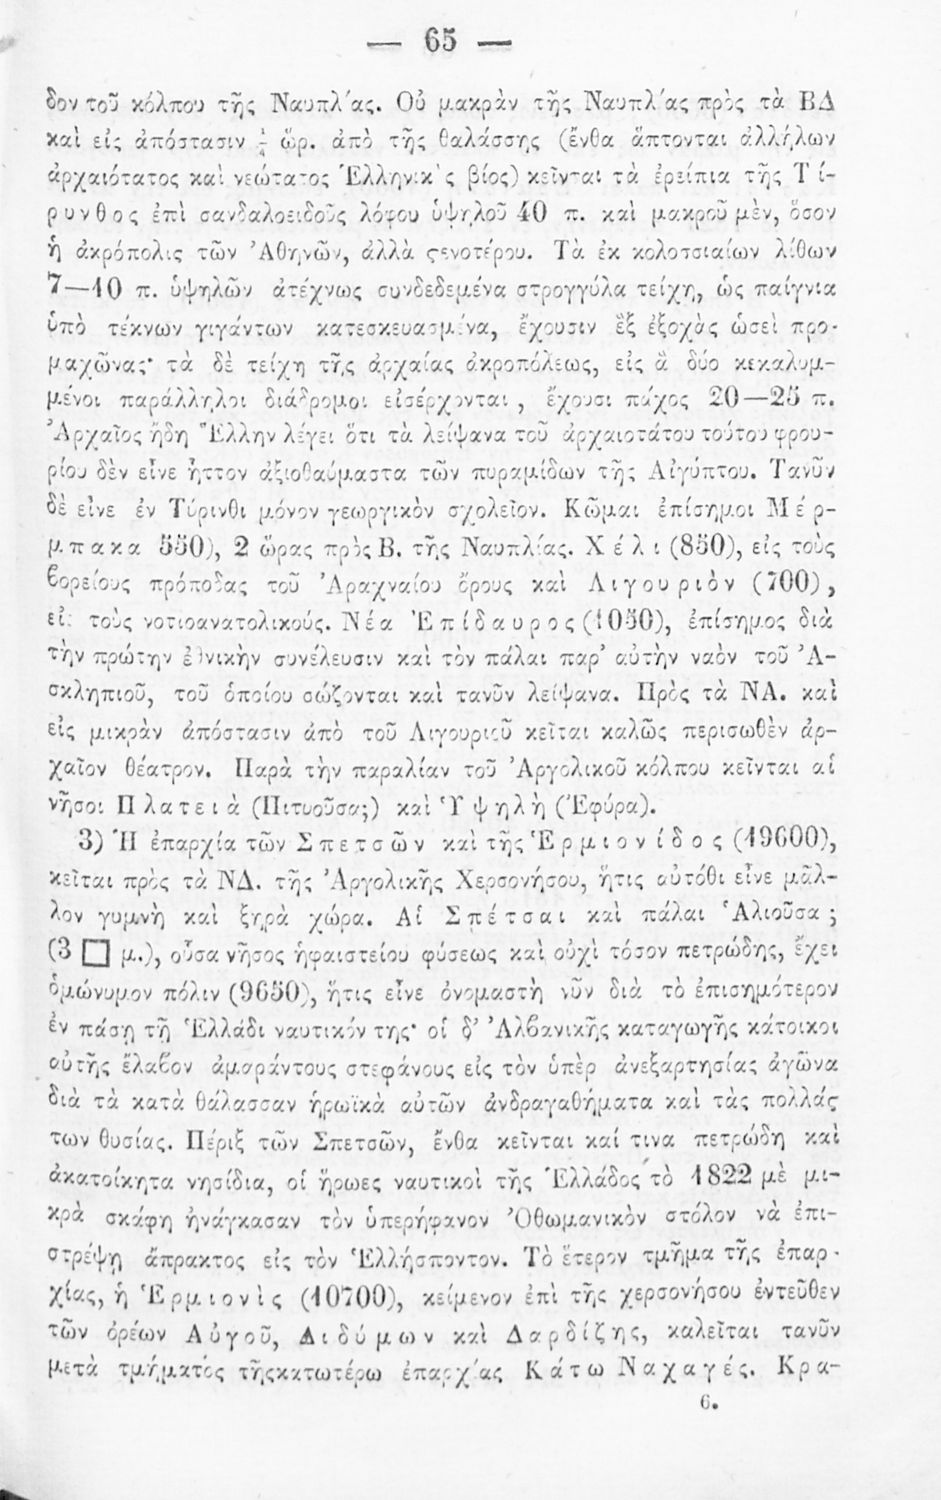 — 65 —
δον τοῦ κόλπου τῆς Ναυπλίας. Οὐ μακρὰν τῆς Ναυπλίας πρὸς τὰ ΒΔ
καὶ εἰς ἀπόστασιν ὥρ. ἀπὸ τῆς θαλάσσης (ἔνθα ἅπτονται ἀλλήλων
ἀρχαιότατος καὶ νεώτατος Ἑλληνικὸς βίος) κεῖνται τὰ ἐρείπια τῆς Τί-
ρυνθος ἐπὶ σανδαλοειδοῦς λόφου ὑψηλοῦ 40 π. καὶ μακροῦ μὲν, ὅσον
ἡ ἀκρόπολις τῶν Ἀθηνῶν, ἀλλὰ ϛενοτέρου. Τὰ ἐκ κολοσσιαίων λίθων
7—10 π. ὑψηλῶν ἀτέχνως συνδεδεμένα στρογγύλα τείχη, ὡς παίγνια
ὑπὸ τέκνων γιγάντων κατεσκευασμένα, ἔχουσιν ἓξ ἐξοχὰς ὡσεὶ προ-
μαχῶνας· τὰ δὲ τείχη τῆς ἀρχαίας ἀκροπόλεως, εἰς ἃ δύο κεκαλυμ-
μένοι παράλληλοι διάδρομοι εἰσέρχονται, ἔχουσι πάχος 20—25 π.
Ἀρχαῖος ἤδη Ἕλλην λέγει ὅτι τὰ λείψανα τοῦ ἀρχαιοτάτου τούτου φρου-
ρίου δὲν εἶνε ἧττον ἀξιοθαύμαστα τῶν πυραμίδων τῆς Αἰγύπτου. Τανῦν
δὲ εἶνε ἐν Τύρινθι μόνον γεωργικὸν σχολεῖον. Κῶμαι ἐπίσημοι Μέρ-
μπακα 550), 2 ὥρας πρὸς Β. τῆς Ναυπλίας. Χέλι (850), εἰς τοὺς
βορείους πρόποδας τοῦ Ἀραχναίου ὄρους καὶ Λιγουριὸν (700),
εἰς τοὺς νοτιοανατολικούς. Νέα Ἐπίδαυρος (1050), ἐπίσημος διὰ
τὴν πρώτην ἐθνικὴν συνέλευσιν καὶ τὸν πάλαι παρ’ αὐτὴν ναὸν τοῦ Ἀ-
σκληπιοῦ, τοῦ ὁποίου σώζονται καὶ τανῦν λείψανα. Πρὸς τὰ ΝΑ. καὶ
εἰς μικρὰν ἀπόστασιν ἀπὸ τοῦ Λιγουριοῦ κεῖται καλῶς περισωθὲν ἀρ-
χαῖον θέατρον. Παρὰ τὴν παραλίαν τοῦ Ἀργολικοῦ κόλπου κεῖνται αἱ
νῆσοι Πλατειὰ (Πιτυοῦσα;) καὶ Ὑψηλὴ (Ἐφύρα).
3) Ἡ ἐπαρχία τῶν Σπετσῶν καὶ τῆς Ἑρμιονίδος (19600),
κεῖται πρὸς τὰ ΝΔ. τῆς Ἀργολικῆς Χερσονήσου, ἥτις αὐτόθι εἶνε μᾶλ-
λον γυμνὴ καὶ ξηρὰ χώρα. Αἱ Σπέτσαι καὶ πάλαι Ἁλιοῦσα;
(3 □ μ.), οὖσα νῆσος ἡφαιστείου φύσεως καὶ οὐχὶ τόσον πετρώδης, ἔχει
ὁμώνυμον πόλιν (9650), ἥτις εἶνε ὀνομαστὴ νῦν διὰ τὸ ἐπισημότερον
ἐν πάσῃ τῇ Ἑλλάδι ναυτικόν της· οἱ δ’ Ἀλβανικῆς καταγωγῆς κάτοικοι
αὐτῆς ἔλαβον ἀμαράντους στεφάνους εἰς τὸν ὑπὲρ ἀνεξαρτησίας ἀγῶνα
διὰ τὰ κατὰ θάλασσαν ἡρωϊκὰ αὐτῶν ἀνδραγαθήματα καὶ τὰς πολλάς
των θυσίας. Πέριξ τῶν Σπετσῶν, ἔνθα κεῖνται καί τινα πετρώδη καὶ
ἀκατοίκητα νησίδια, οἱ ἥρωες ναυτικοὶ τῆς Ἑλλάδος τὸ 1822 μὲ μι-
κρὰ σκάφη ἠνάγκασαν τὸν ὑπερήφανον Ὀθωμανικὸν στόλον νὰ ἐπι-
στρέψῃ ἄπρακτος εἰς τὸν Ἑλλήσποντον. Τὸ ἕτερον τμῆμα τῆς ἐπαρ-
χίας, ἡ Ἑρμιονὶς (10700), κείμενον ἐπὶ τῆς χερσονήσου ἐντεῦθεν
τῶν ὀρέων Αὐγοῦ, Διδύμων καὶ Δαρδίζης, καλεῖται τανῦν
μετὰ τμήματος τῆς κατωτέρω ἐπαρχίας Κάτω Ναχαγές. Κρα-
6.